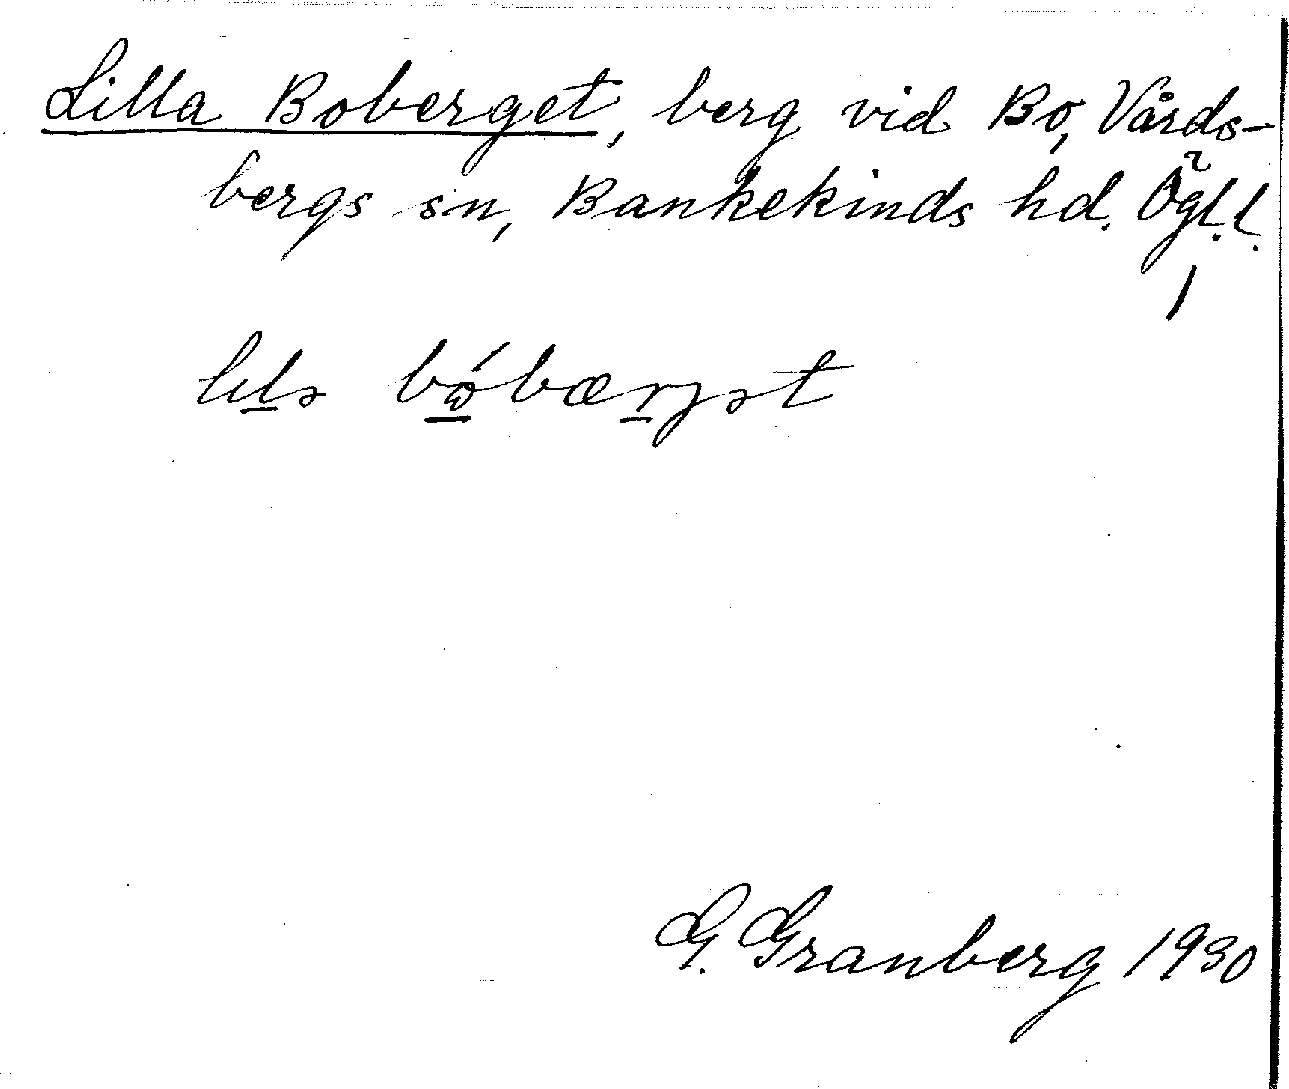 Lilla Boberget, berg vid Bo, Vårds-
bergs sn, Bankekinds hd. Ögl.l.
lılə bɷ́bærjət
G. Granberg 1930